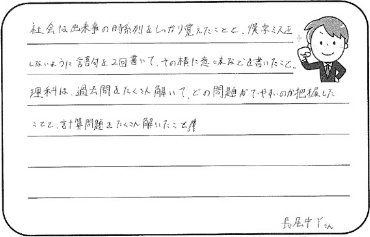 社会は出来事の時系列をしっかり覚えたことと、漢字ミスを
しないように語句を2回書いて、その横に意味などを書いたこと。
理科は、過去問をたくさん解いて、どの問題がでやすいのか把握した
ことと、計算問題をたくさん解いたこと!!
長居中 Yさん